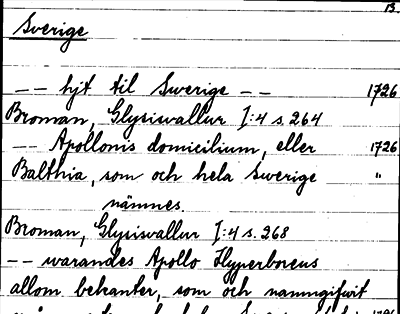 13.
Sverige
-- hjt til Swerige -- 1726
Broman, Glysisvallur I:4 s. 264
-- Apollonis domicilium, eller 1726
Balthia, som och hela Swerige "
nämnes.
Broman, Glysisvallur I:4 s. 268
-- warandes Apollo Hyperboreus
allom bekanter, som och namngifwit